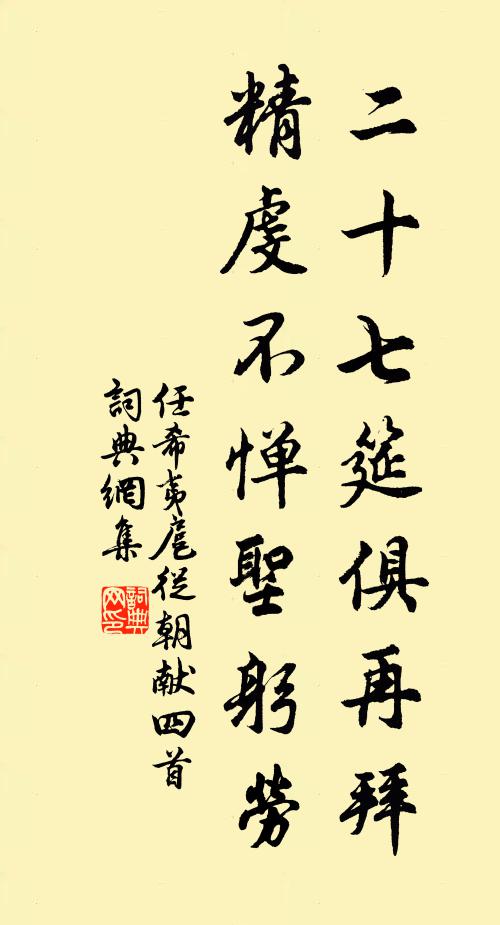 二十七筵俱再拜
精虔不惮聖躬勞
任希夷扈從朝献四首
詞典網集
詞典网印